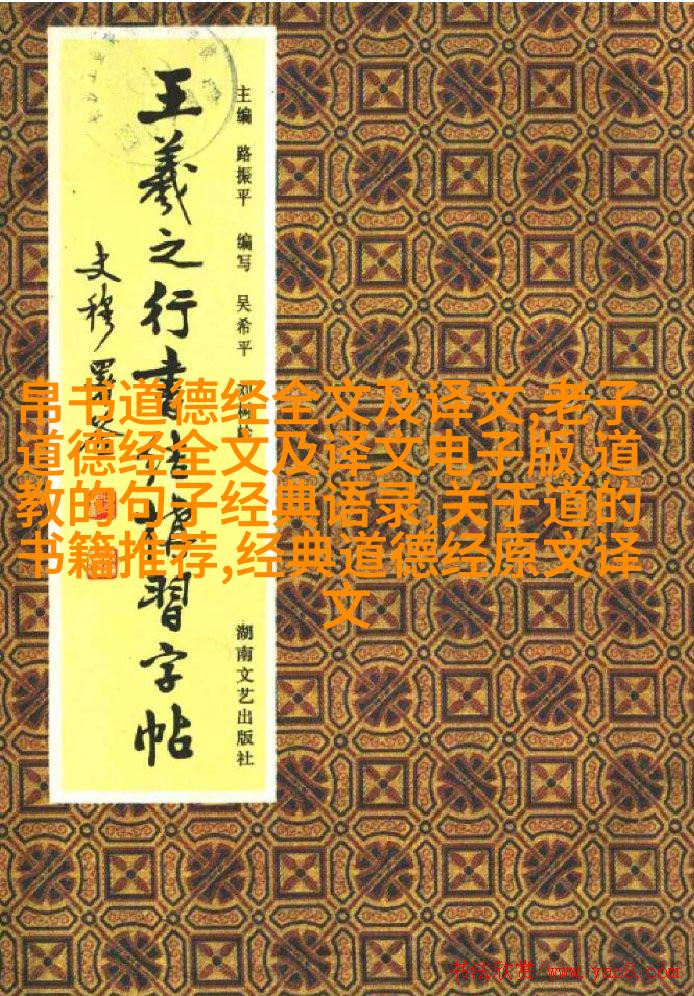 王羲之行書
習字帖
史穆
主编 路振平 编写 吴希平
湖南文艺出版社
帛书道德经全文及译文,老子
道德经全文及译文电子版,道
教的句子经典语录,关于道的
书籍推荐,经典道德经原文译
文
书法欣赏 www.yac8.com